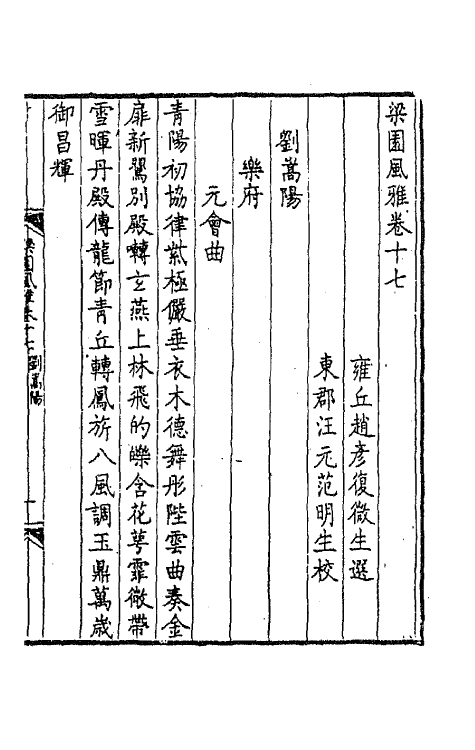 梁園風雅卷十七
雍丘趙彥復微生選
東郡汪元范明生校
劉嵩陽
樂府
元會曲
青陽初協律紫極儼垂衣木德舞彤陛雲曲奏金
扉新鶯別殿囀玄燕上林飛的皪含花萼霏微帶
雪暉丹殿傳龍節青丘轉鳳旂八風調玉鼎萬歲
御昌輝
梁園風雅卷十七 劉嵩陽 一